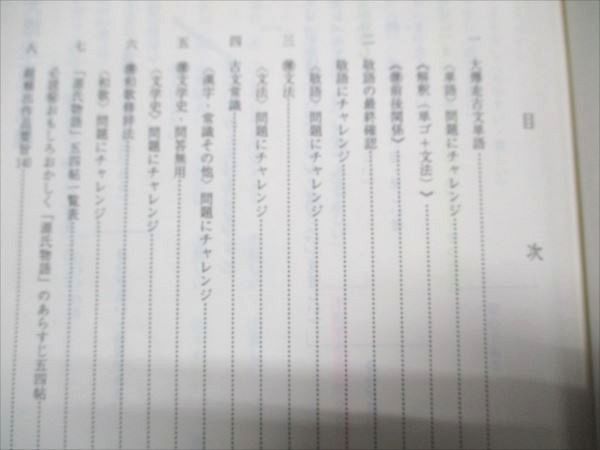 目次
一 大爆走古文単語
〈単語〉問題にチャレンジ
《解釈(単ゴ+文法)》
前後関係》
二 敬語の最終確認
敬語にチャレンジ
〈敬語〉問題にチャレンジ
三 文法
〈文法〉問題にチャレンジ
四 古文常識
〈漢字・常識その他〉問題にチャレンジ
五 文学史・問答無用
〈文学史〉問題にチャレンジ
六 和歌修辞法
〈和歌〉問題にチャレンジ
七 『源氏物語』五四帖一覧表
必読解おもしろおかしく『源氏物語』のあらすじ五四帖
八 超頻出作品要旨140